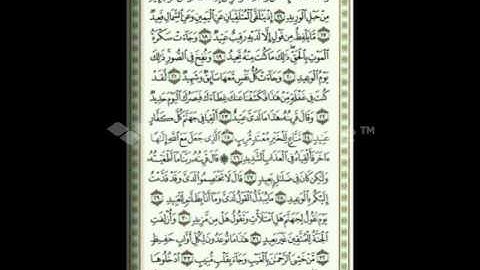 مِنْ حَبْلِ الْوَرِيدِ ١٦ إِذْ يَتَلَقَّى الْمُتَلَقِّيَانِ عَنِ الْيَمِينِ وَعَنِ الشِّمَالِ قَعِيدٌ
١٧ مَا يَلْفِظُ مِنْ قَوْلٍ إِلَّا لَدَيْهِ رَقِيبٌ عَتِيدٌ ١٨ وَجَاءَتْ سَكْرَةُ
الْمَوْتِ بِالْحَقِّ ذَٰلِكَ مَا كُنْتَ مِنْهُ تَحِيدُ ١٩ وَنُفِخَ فِي الصُّورِ ذَٰلِكَ
يَوْمُ الْوَعِيدِ ٢٠ وَجَاءَتْ كُلُّ نَفْسٍ مَعَهَا سَائِقٌ وَشَهِيدٌ ٢١ لَقَدْ
كُنْتَ فِي غَفْلَةٍ مِنْ هَٰذَا فَكَشَفْنَا عَنْكَ غِطَاءَكَ فَبَصَرُكَ الْيَوْمَ حَدِيدٌ
٢٢ وَقَالَ قَرِينُهُ هَٰذَا مَا لَدَيَّ عَتِيدٌ ٢٣ أَلْقِيَا فِي جَهَنَّمَ كُلَّ كَفَّارٍ
عَنِيدٍ ٢٤ مَنَّاعٍ لِلْخَيْرِ مُعْتَدٍ مُرِيبٍ ٢٥ الَّذِي جَعَلَ مَعَ اللَّهِ إِلَٰهًا
آخَرَ فَأَلْقِيَاهُ فِي الْعَذَابِ الشَّدِيدِ ٢٦ ۞ قَالَ قَرِينُهُ رَبَّنَا مَا أَطْغَيْتُهُ
وَلَٰكِنْ كَانَ فِي ضَلَالٍ بَعِيدٍ ٢٧ قَالَ لَا تَخْتَصِمُوا لَدَيَّ وَقَدْ قَدَّمْتُ
إِلَيْكُمْ بِالْوَعِيدِ ٢٨ مَا يُبَدَّلُ الْقَوْلُ لَدَيَّ وَمَا أَنَا بِظَلَّامٍ لِلْعَبِيدِ ٢٩
يَوْمَ نَقُولُ لِجَهَنَّمَ هَلِ امْتَلَأْتِ وَتَقُولُ هَلْ مِنْ مَزِيدٍ ٣٠ وَأُزْلِفَتِ
الْجَنَّةُ لِلْمُتَّقِينَ غَيْرَ بَعِيدٍ ٣١ هَٰذَا مَا تُوعَدُونَ لِكُلِّ أَوَّابٍ حَفِيظٍ
٣٢ مَنْ خَشِيَ الرَّحْمَٰنَ بِالْغَيْبِ وَجَاءَ بِقَلْبٍ مُنِيبٍ ٣٣ ادْخُلُوهَا